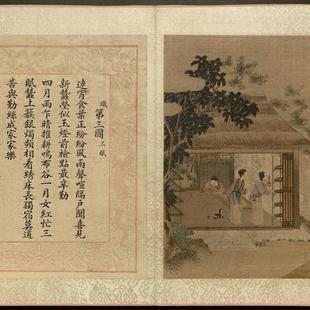 織 第三圖 三眠
連宵食葉正紛紛風雨聲喧隔戶聞喜見
新蠶瑩似玉燈前檢點最辛勤
四月雨乍晴催耕鳴布谷一月女紅忙三
眠蠶上簇銀燭頻相看綉床長獨宿莫道
苦與勤絲成家家樂